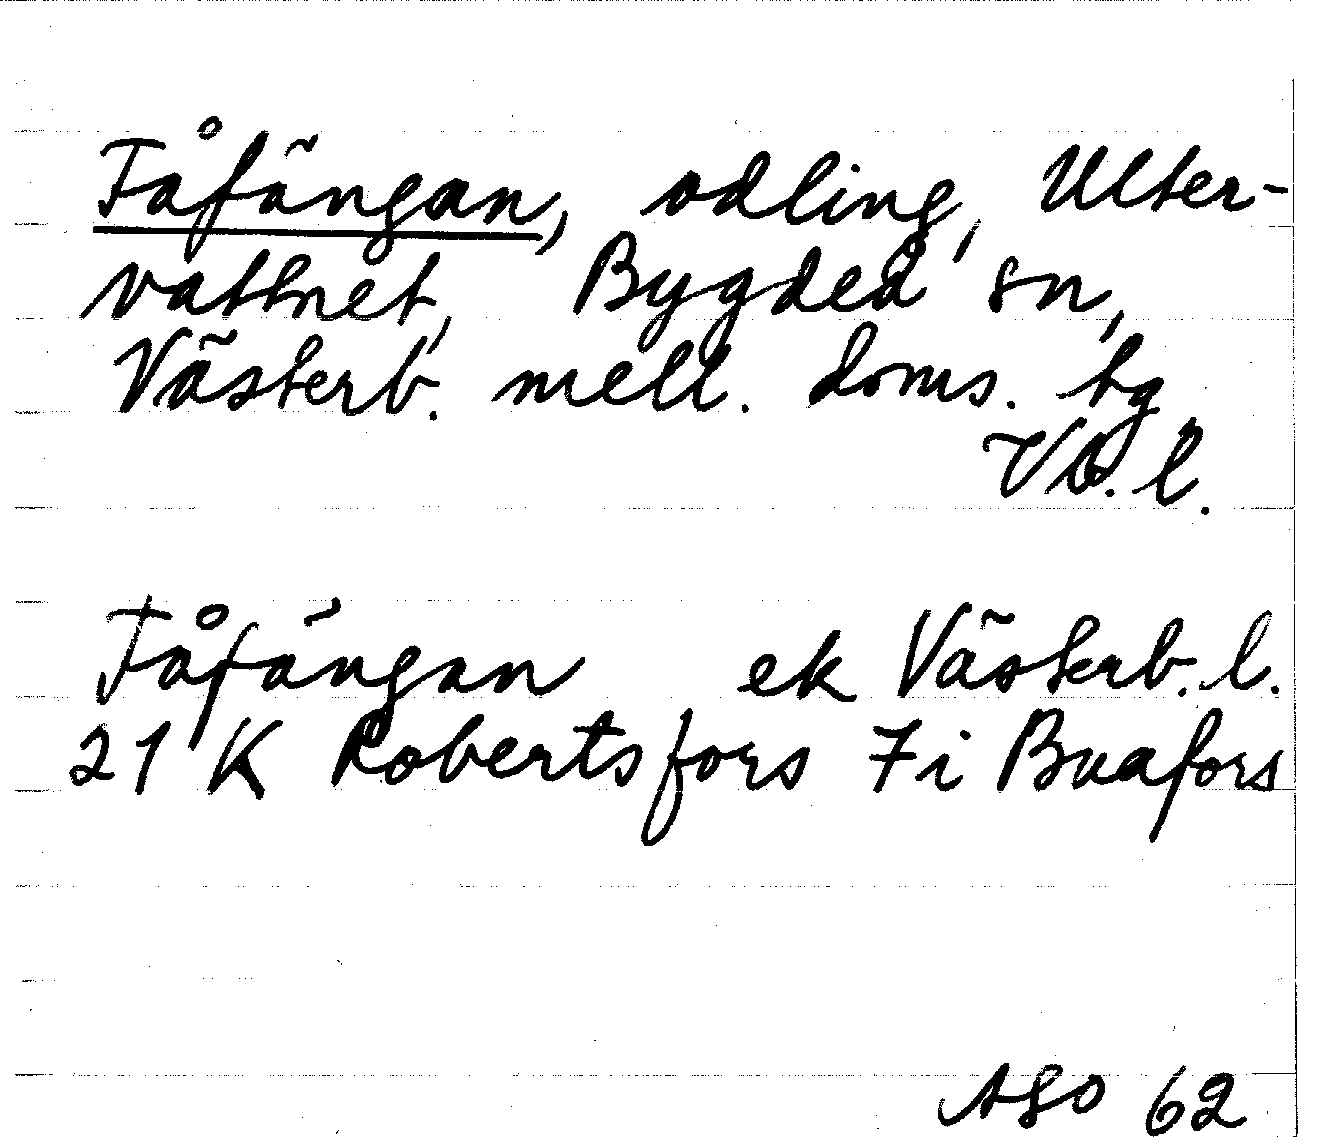 Tåfängan, odling, Ulter-
vattnet, Bygdeå sn,
Västerb. mell. doms. tg
Vb. l.
Tåfängan ek Västerb. l.
21 K Robertsfors 7i Buafors
ASO 62